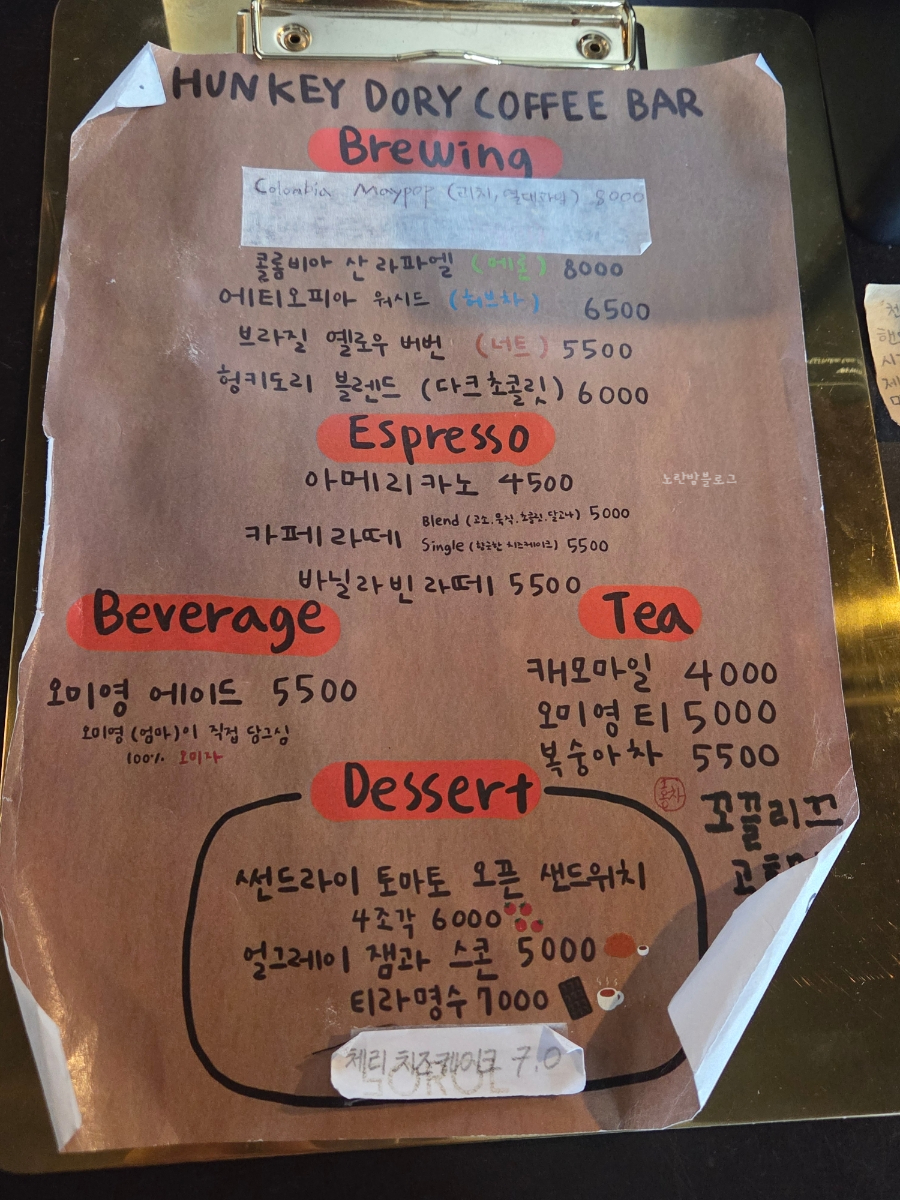 HUNKEY DORY COFFEE BAR
Brewing
Colombia Maypop (리치, 열대과일) 8000
콜롬비아 산 라파엘 (메론) 8000
에티오피아 워시드 (허브차) 6500
브라질 옐로우 버번 (너트) 5500
헝키도리 블렌드 (다크초콜릿) 6000
Espresso
아메리카노 4500
노란방블로그
카페라떼
Blend (고소.묵직.초콜릿.달고나) 5000
Single (향긋한 치즈케이크) 5500
바닐라빈라떼 5500
Beverage
오미영 에이드 5500
오미영 (엄마)이 직접 담그심
100% 오미자
Tea
캐모마일 4000
오미영티 5000
복숭아차 5500
홍차
꼬끌리꼬
Dessert
썬드라이 토마토 오픈 샌드위치
4조각 6000
얼그레이 잼과 스콘 5000
티라명수 7000
체리 치즈케이크 7.0